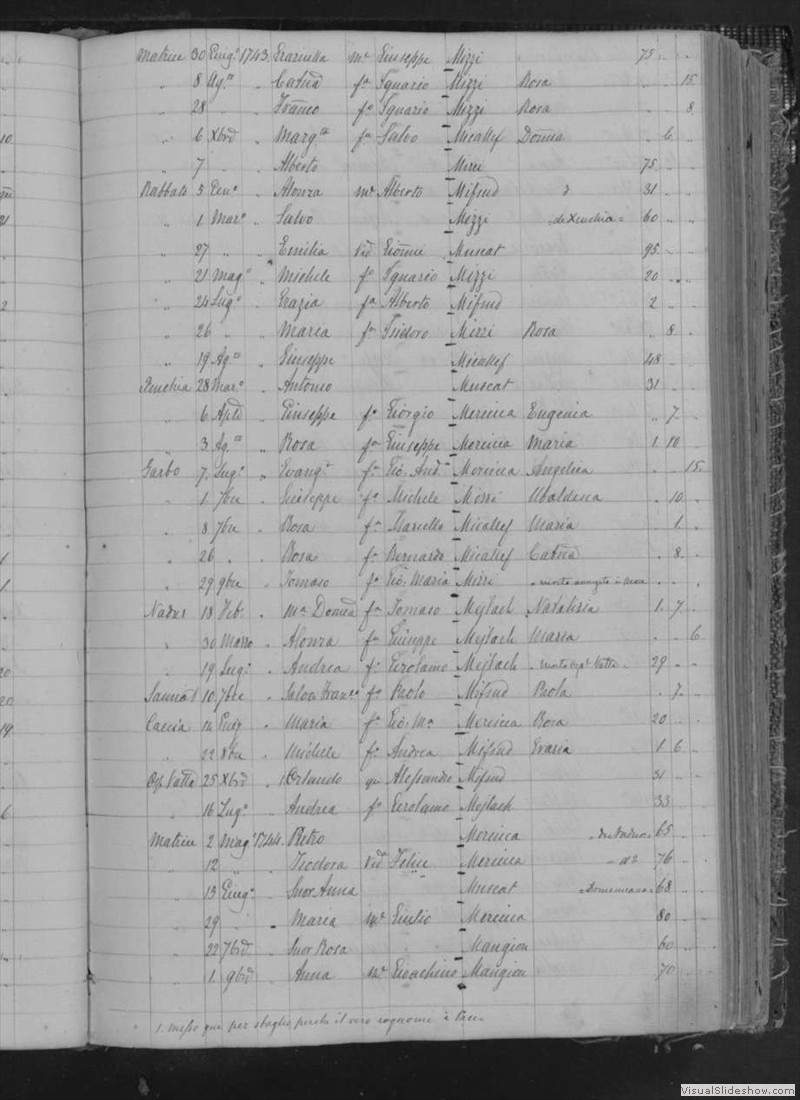 10
21
2
1
1.
20
20
19
6
Matrice 30 Giug.o 1743 Graziulla m.e Giuseppe Mizzi 75 " "
" 8 Ag.to " Catñā f.a Ignazio Mizzi Rosa " " 15
" 28 " " Franco f.o Ignazio Mizzi Rosa " " 8
" 6 Xbrē " Marg.ta f.a Salvo Micallef Domca " 6 "
" 7 " " Alberto Mizzi 75 " "
Rabbato 5 Gen.o " Alonza m.e Alberto Mifsud 31 " "
" 1 Mar.o " Salvo Mizzi "di Xeuchia" 60 " "
" 27 " " Emilia Vid Muscat 95 " "
" 21 Mag.o " Michele f.o Ignazio Mizzi 20 " "
" 24 Lug.o " Grazia f.a Alberto Mifsud 2 " "
" 26 " " Maria f.a Isidoro Mizzi Rosa " 8 "
" 19 Ag.to " Giuseppe Micallef 48 " "
Xeuchia 28 Mar.o " Antonio Muscat 31 " "
" 6 Aplē " Giuseppe f.o Giorgio Mercieca Eugenia " 7 "
" 3 Ag.to " Rosa f.a Giuseppe Mercieca Maria 1 10 "
Garbo 7 Lug.o " Evang.ta f.a Gio. And.a Mercieca Angelica " " 15
" 1 7bre " Giuseppe f.o Michele Mizzi Ubaldesca " 10 "
" 8 7bre " Rosa f.a Marcello Micallef Maria " 1 "
" 26 " " Rosa f.a Bernardo Micallef Catñā " 8 "
" 29 9bre " Tomaso f.o Gio. Maria Mizzi " "
Nadur 18 Feb. " M.a Domca f.a Tomaso Mejlach Natalizia 1 7 "
" 30 Marzo " Alonza f.a Giuseppe Mejlach Maria " " 6
" 19 Lug.o " Andrea f.o Gerolamo Mejlach "morto osp.l Vallta" 29 " "
Sannat 10 7bre " Salva Franc.a f.a Paolo Mifsud Paola " 7 "
Caccia 14 Giug " Maria f.a Gio. M.a Mercieca Rosa 20 " "
" 22 " Michele f.o Andrea Mifsud Grazia 1 6 "
Osp. Vallta 25 Xbrē " Orlando qu Alessandro Mifsud 31 " "
" 16 Lug.o " Andrea f.o Gerolamo Mejlach 33 " "
Matrice 2 Mag.o 1744 Pietro Mercieca "du Nadur" 65 " "
" 12 " " Teodora Vid Felice Mercieca 76 " "
" 13 Giug.o " Suor Anna Muscat "Domenicana" 68 " "
" 29 " " Maria m.e Giulio Mercieca 80 " "
" 22 7brē " Suor Rosa Mangion 60 " "
" 1 9brē " Anna m.e Gioachino Mangion 70 " "
1. messo qui per sbaglio perchè il vero cognome è
VisualSlideshow.com